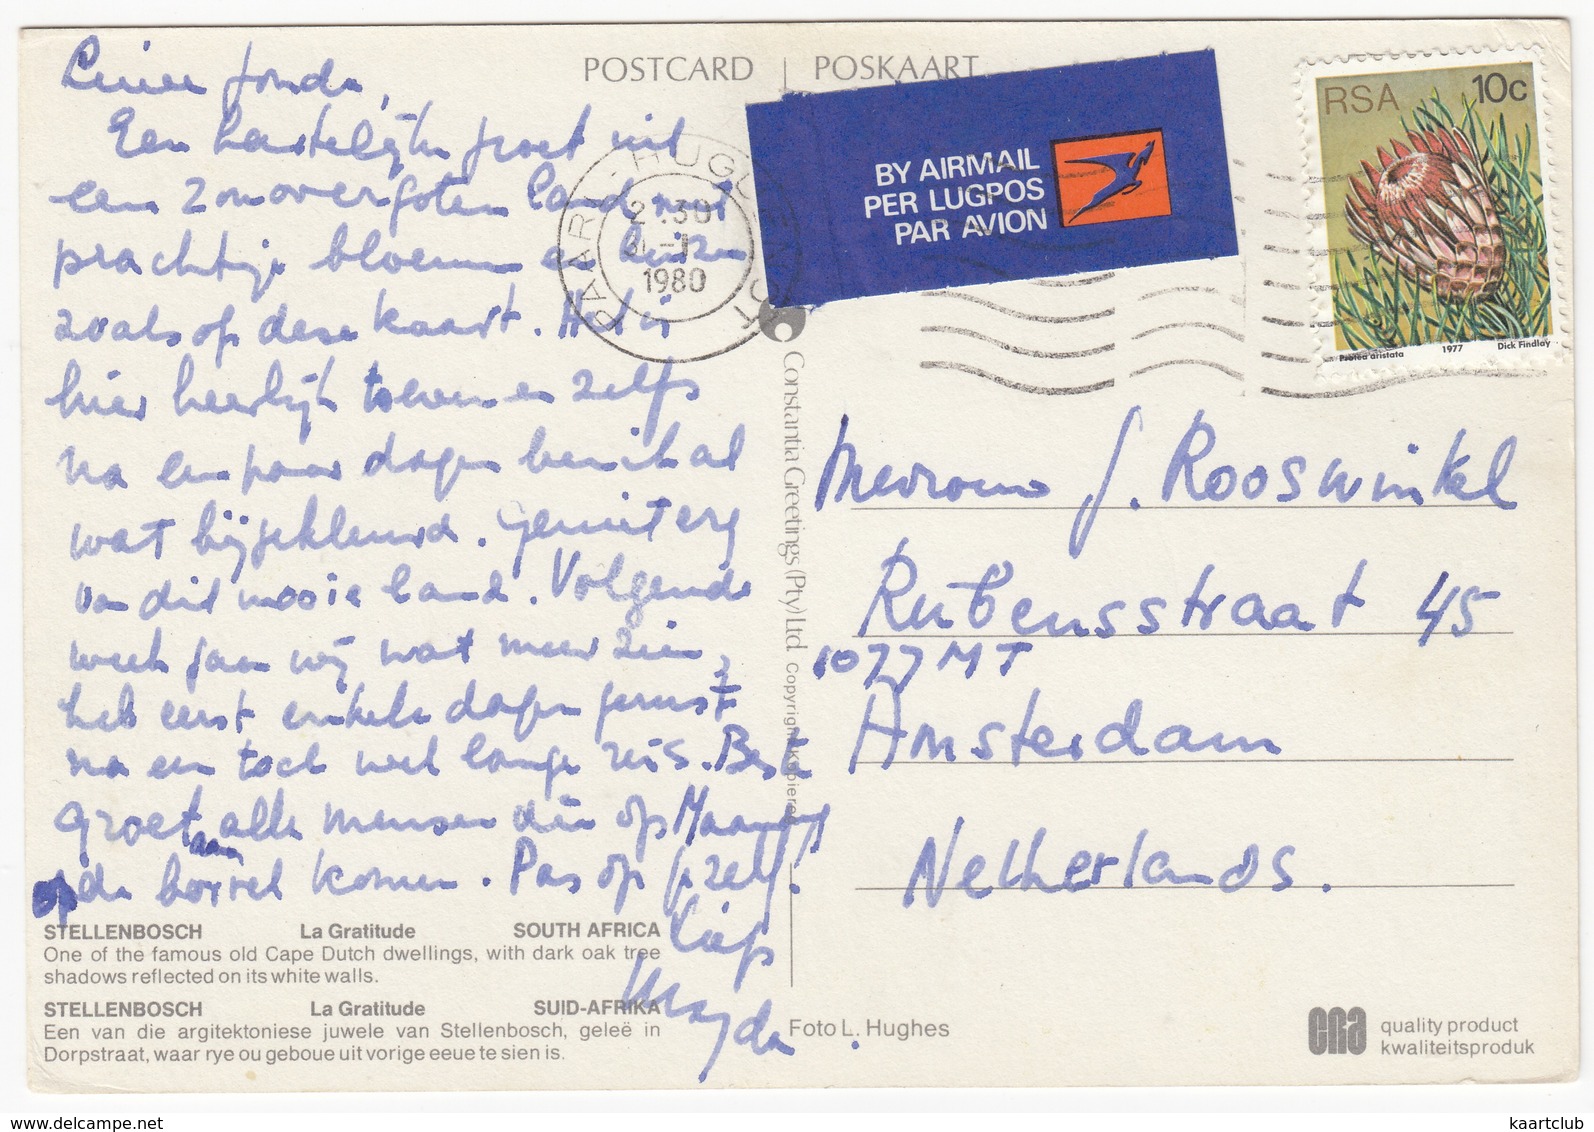 POSTCARD | POSKAART
Een hartelijke groet uit
een zonovergoten land met
prachtige bloemen en huizen
zoals op deze kaart. Het is
hier heerlijk toeven en zelfs
na een paar dagen ben ik al
wat bijgekleurd. Geniet erg
van dit mooie land. Volgende
week gaan wij wat meer zien,
heb eerst enkele dagen gerust
na een toch wel lange reis. Beste
groet alle mensen die op Maandag
op de borrel komen. Pas op jezelf!
Liefs
Magda.
BY AIRMAIL
PER LUGPOS
PAR AVION
RSA 10c
Protea aristata 1977 Dick Findlay
PAARL-HUGUE
1980
Mevrouw J. Rooswinkel
Rubensstraat 45
1077 MT
Amsterdam
Netherlands.
Constantia Greetings (Pty) Ltd. Copyright
STELLENBOSCH La Gratitude SOUTH AFRICA
One of the famous old Cape Dutch dwellings, with dark oak tree
shadows reflected on its white walls.
STELLENBOSCH La Gratitude SUID-AFRIKA
Een van die argitektoniese juwele van Stellenbosch, geleë in
Dorpstraat, waar rye ou geboue uit vorige eeue te sien is.
Foto L. Hughes
cna quality product
kwaliteitsproduk
kaartclub